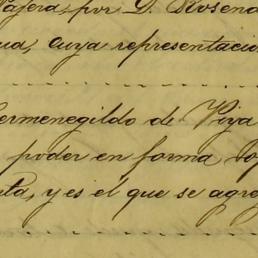 Pajera, por D. Rosend
ua, cuya representacio
ermenegildo de Viya
poder en forma
nta, y es el que se agre